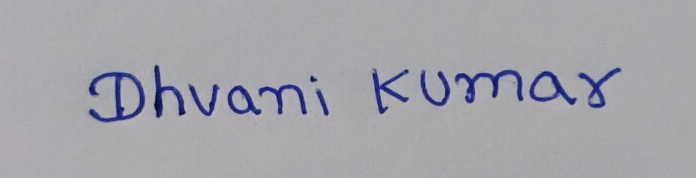 Dhvani Kumar